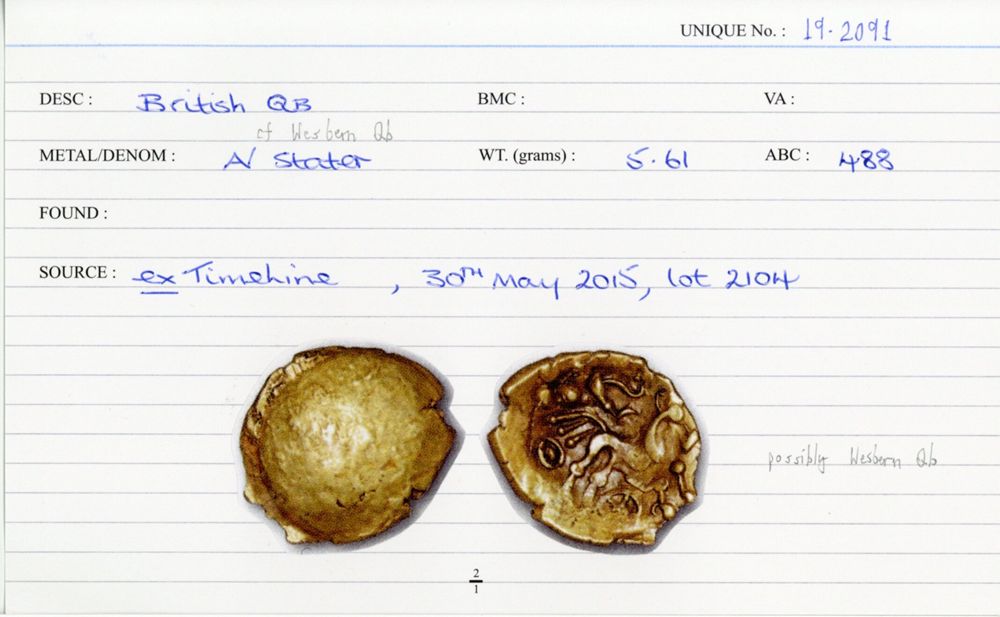 UNIQUE No. : 19.2091
DESC : British QB BMC : VA :
cf Western Qb
METAL/DENOM : AV Stater WT. (grams) : 5.61 ABC : 488
FOUND :
SOURCE : ex Timeline , 30TH May 2015, lot 2104
possibly Western Qb
2
1